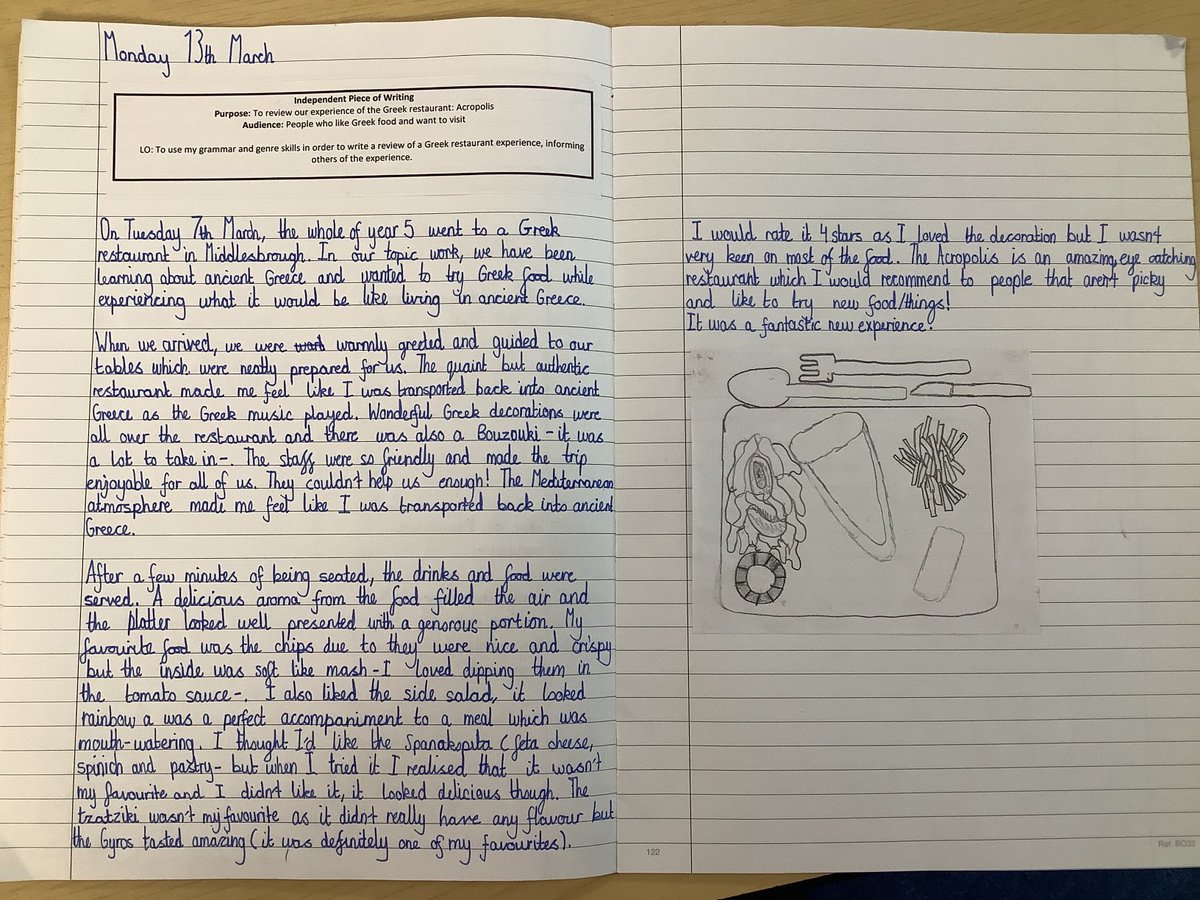 Monday 13th March
Independent Piece of Writing
Purpose: To review our experience of the Greek restaurant: Acropolis
Audience: People who like Greek food and want to visit
LO: To use my grammar and genre skills in order to write a review of a Greek restaurant experience, informing
others of the experience.
On Tuesday 7th March, the whole of year 5 went to a Greek
restaurant in Middlesbrough. In our topic work, we have been
learning about ancient Greece and wanted to try Greek food while
experiencing what it would be like living in ancient Greece.
When we arrived, we were warmly greeted and guided to our
tables which were neatly prepared for us. The quaint but authentic
restaurant made me feel like I was transported back into ancient
Greece as the Greek music played. Wonderful Greek decorations were
all over the restaurant and there was also a Bouzouki - it was
a lot to take in-. The staff were so friendly and made the trip
enjoyable for all of us. They couldn't help us enough! The Mediterranean
atmosphere made me feel like I was transported back into ancient
Greece.
After a few minutes of being seated, the drinks and food were
served. A delicious aroma from the food filled the air and
the platter looked well presented with a genorous portion. My
favourite food was the chips due to they were nice and crispy
but the inside was soft like mash - I loved dipping them in
the tomato sauce-. I also liked the side salad, it looked
rainbow a was a perfect accompaniment to a meal which was
mouth-watering. I thought I'd like the Spanakopita (feta cheese,
spinich and pastry- but when I tried it I realised that it wasn't
my favourite and I didn't like it, it looked delicious though. The
tzatziki wasn't my favourite as it didn't really have any flavour but
the Gyros tasted amazing (it was definitely one of my favourites).
I would rate it 4 stars as I loved the decoration but I wasn't
very keen on most of the food. The Acropolis is an amazing, eye catching
restaurant which I would recommend to people that aren't picky
and like to try new food/things!
It was a fantastic new experience!
122
Ref: BO32